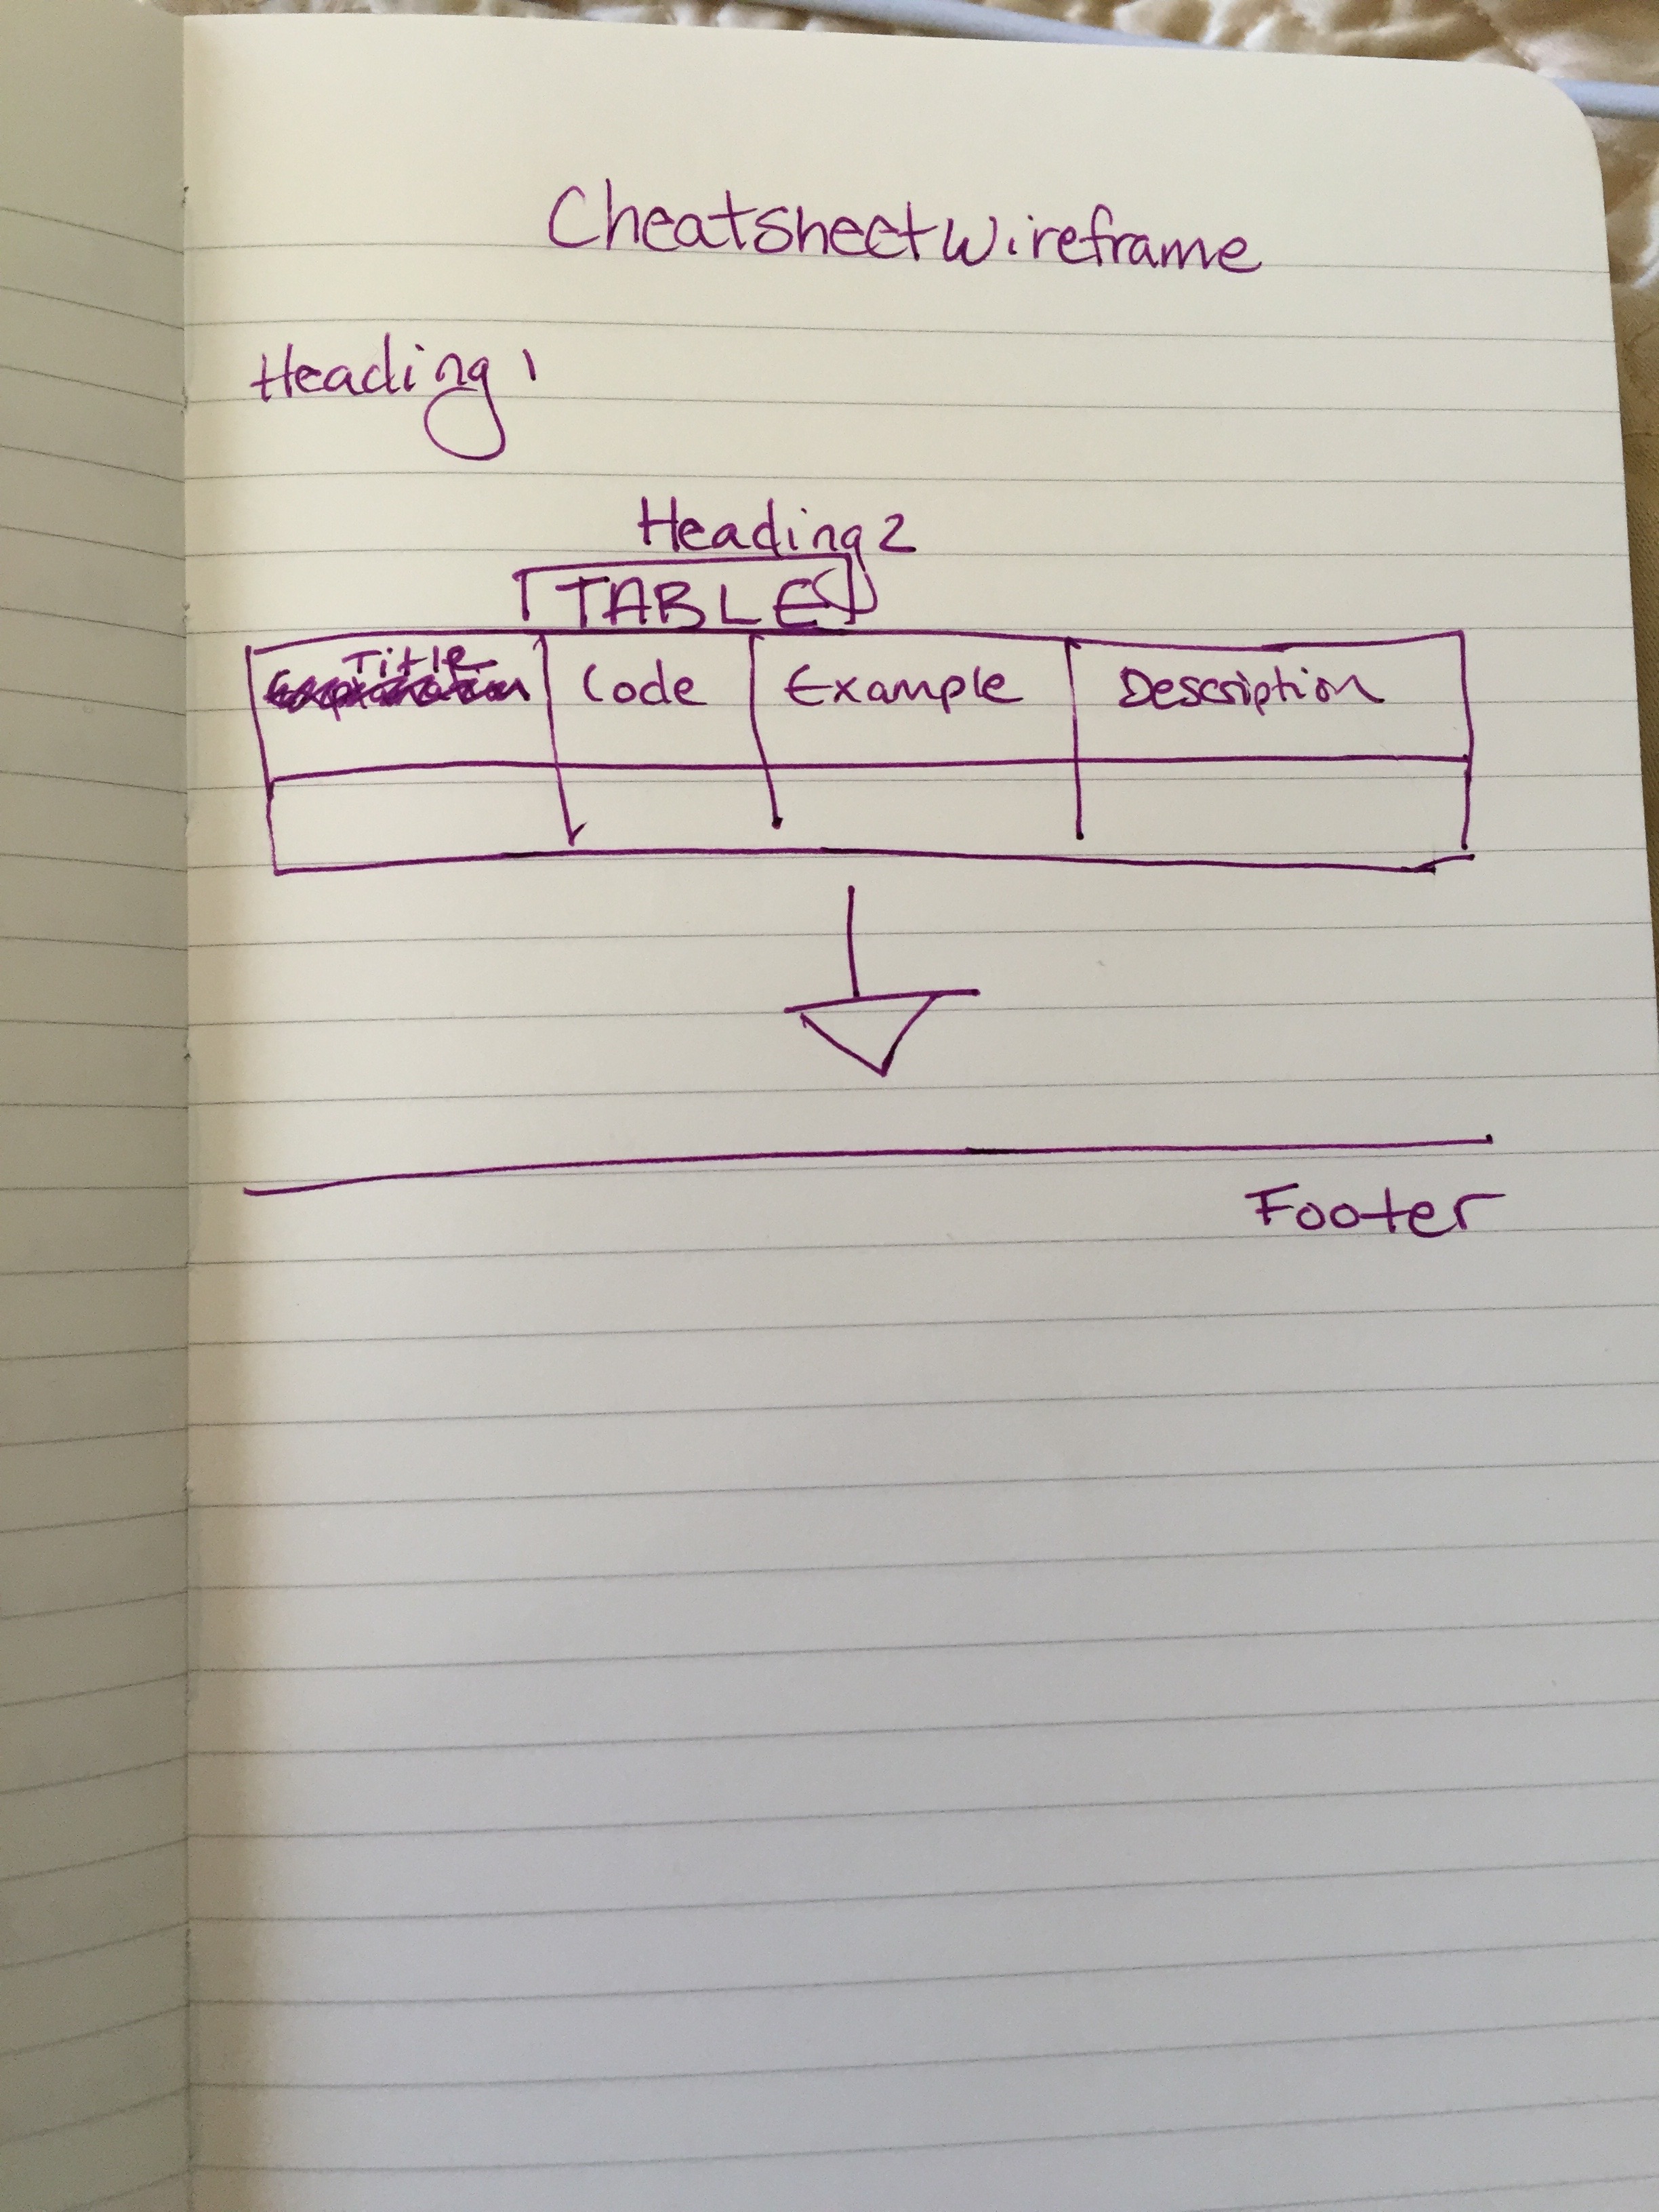 Cheatsheet Wireframe
Heading 1
Heading 2
TABLE
Title Code Example Description
Footer